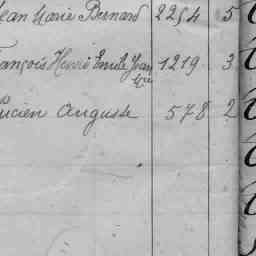 Jean Marie Bernard 2254 5
François Henri Emile Jean 1219 3
Lucien Auguste 578 2